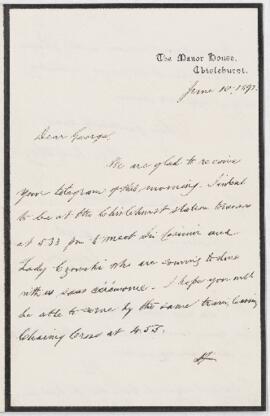 The Manor House,
Chislehurst.
June 10. 1897.
Dear George,
We are glad to receive
your telegram of this morning. I intend
to be at the Chislehurst station
at 5.33 pm to meet Sir Casimir and
Lady Czowski who are coming to dine
with us sans cérémonie. I hope you will
be able to come by the same train, leaving
Charing Cross at 4.55.